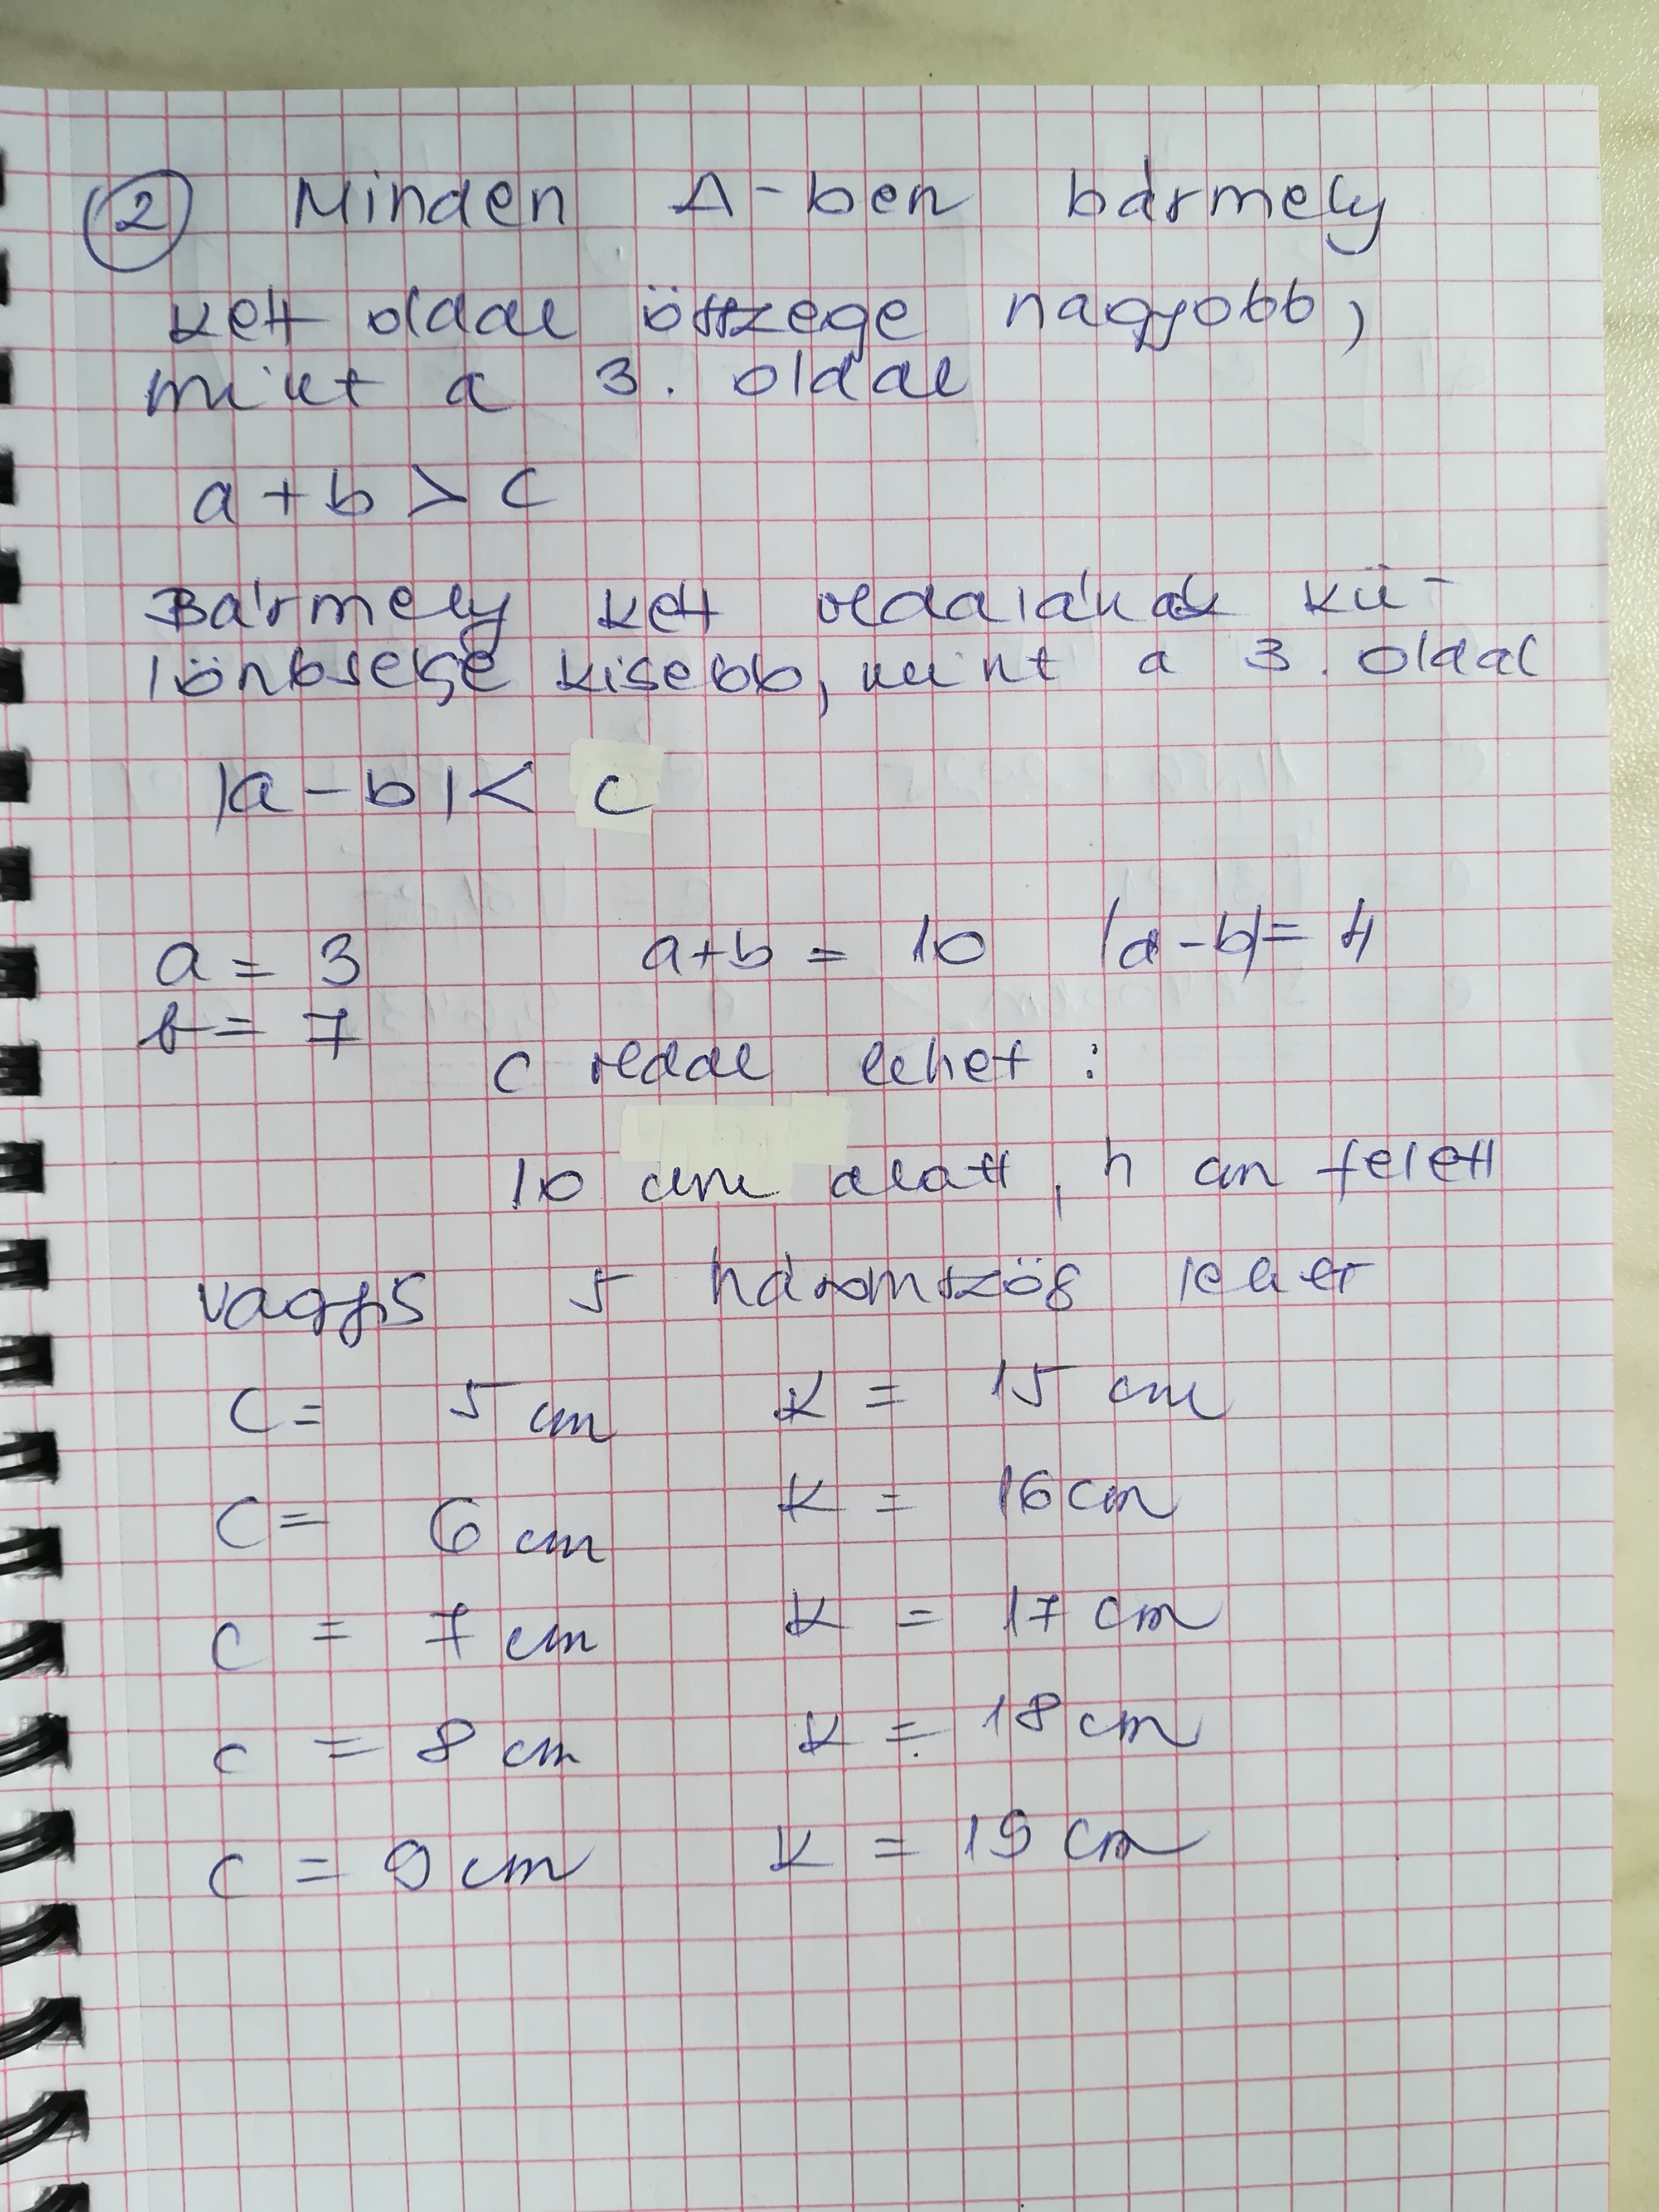 2 Minden Δ-ben bármely
kett oldal összege nagyobb,
mint a 3. oldal
a + b > c
Bármely kett oldalának kü-
lönbsége kisebb, mint a 3. oldal
|a - b| < c
a = 3 a+b = 10 |a - b| = 4
b = 7
c oldal lehet :
10 cm alatt, 4 cm felett
vagyis 5 háromszög lehet
C = 5 cm K = 15 cm
C = 6 cm K = 16 cm
c = 7 cm K = 17 cm
c = 8 cm K = 18 cm
c = 9 cm K = 19 cm